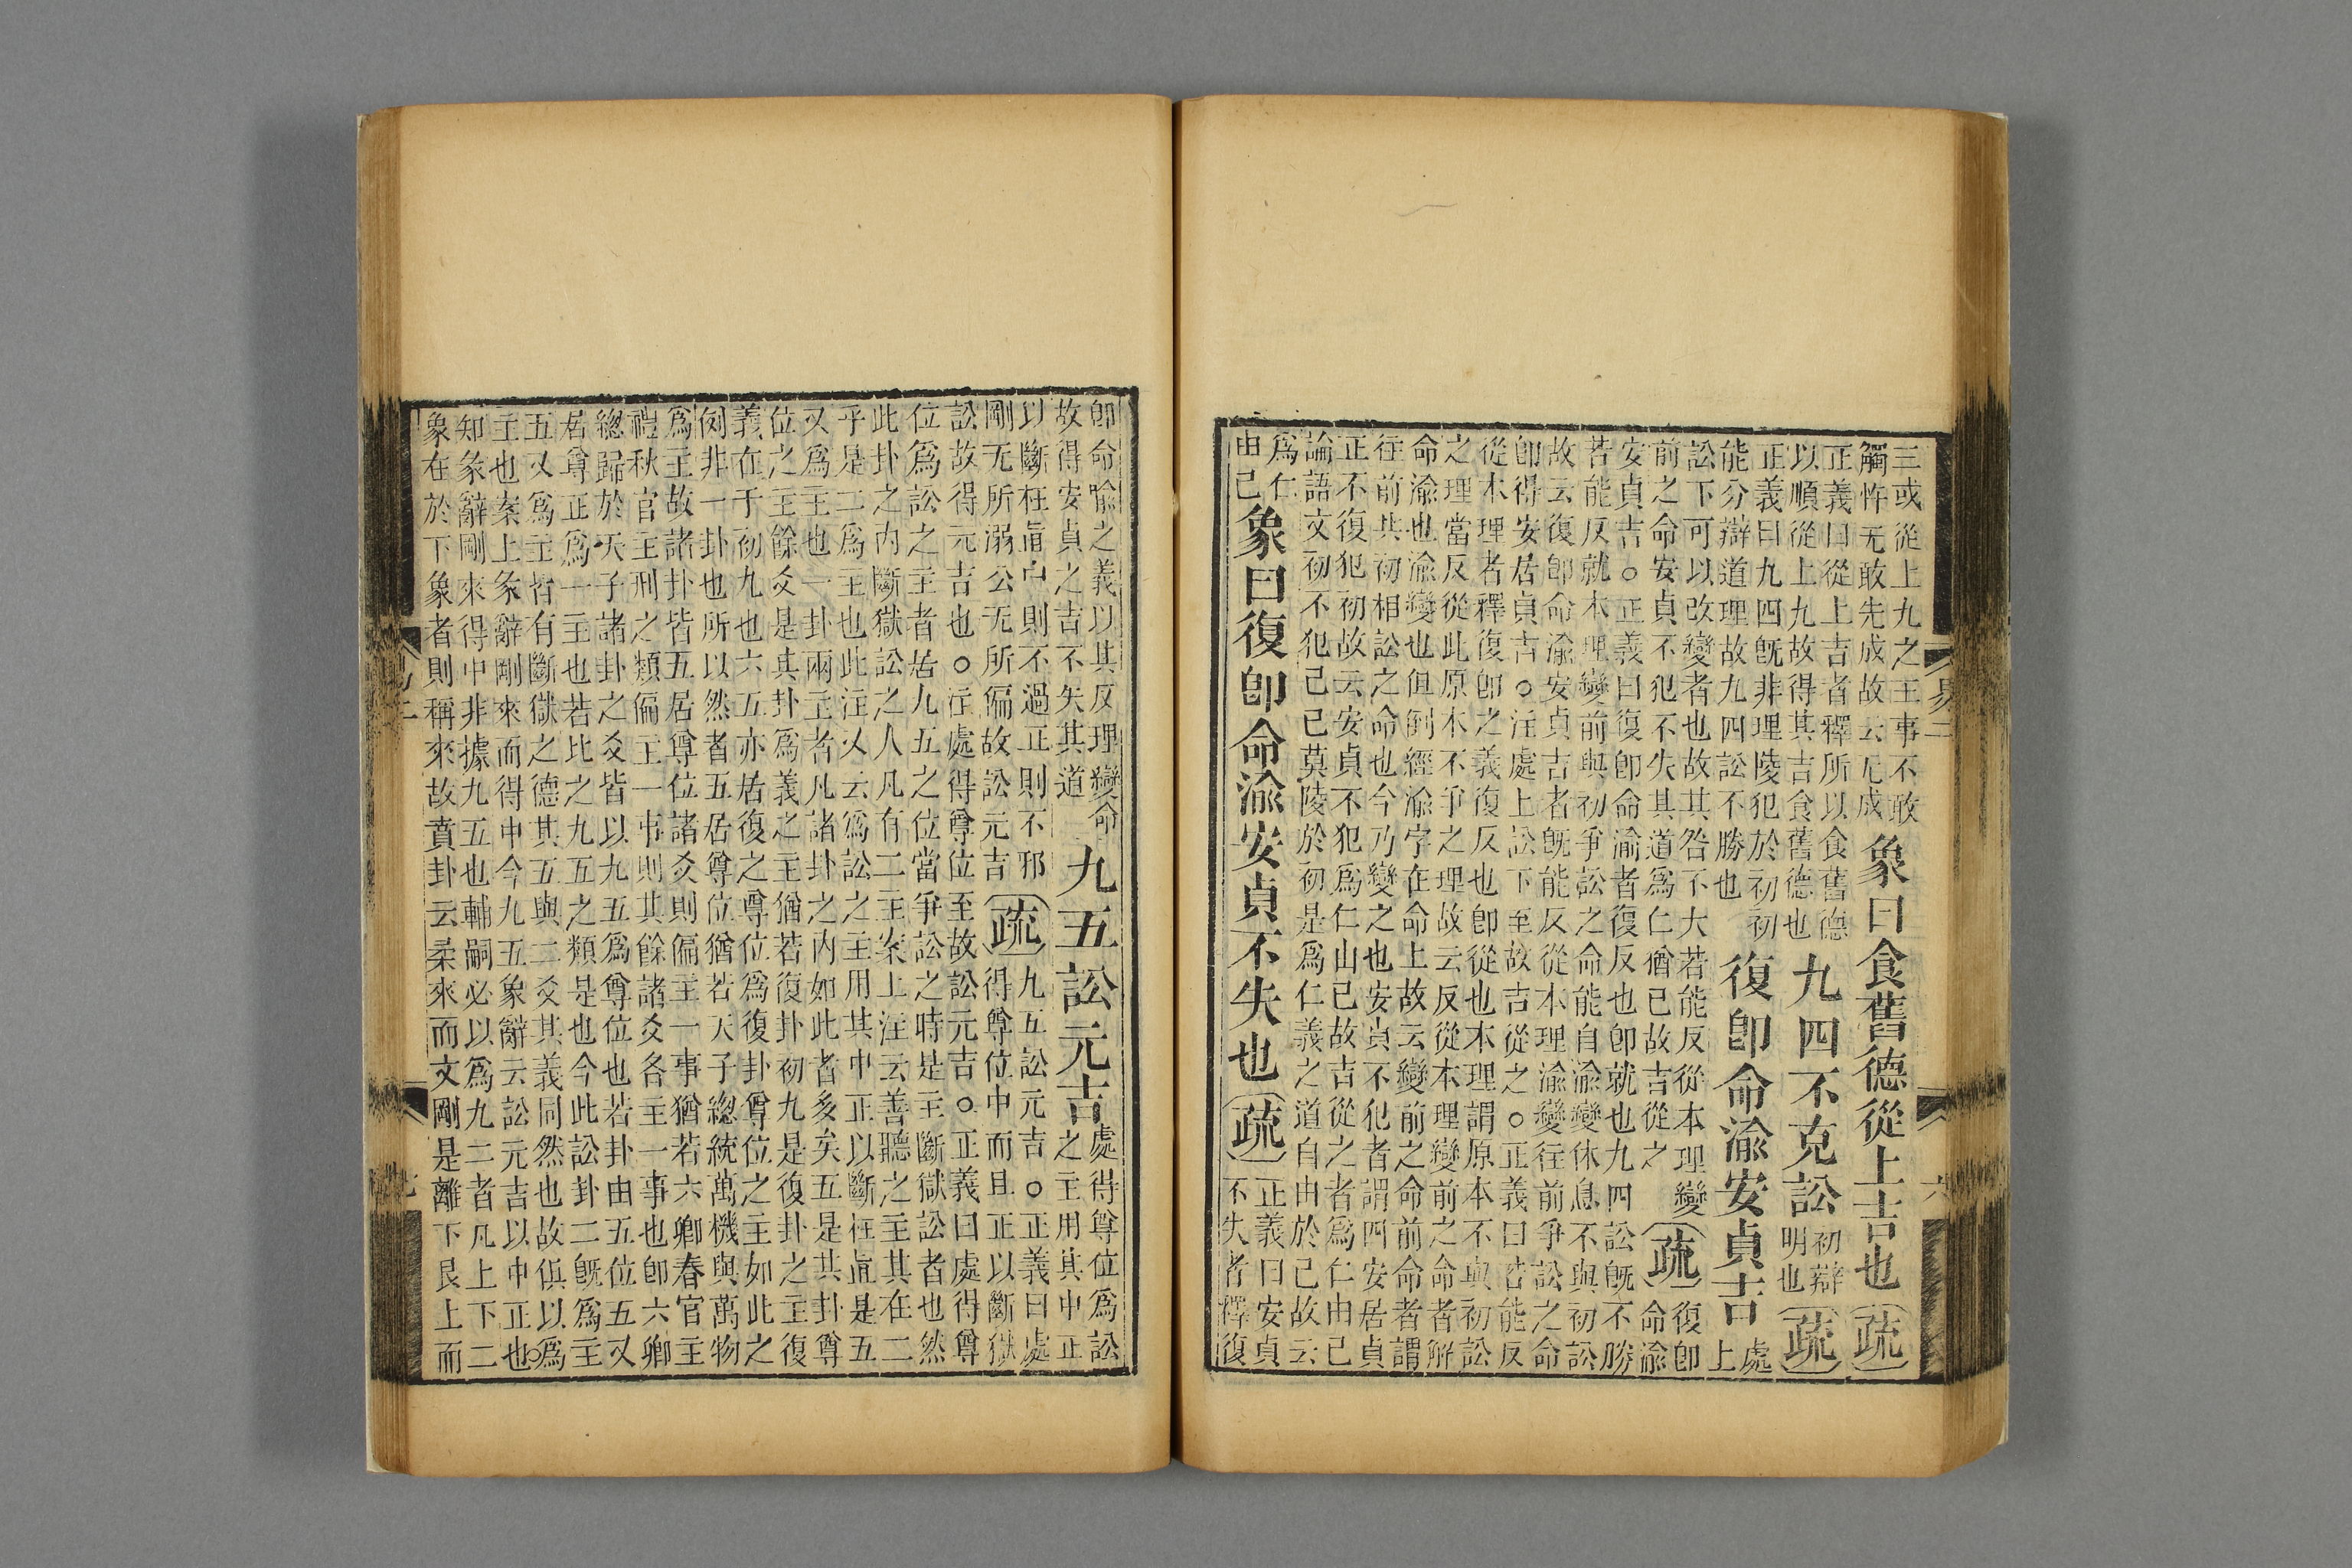 三或從上九之王事不敢
觸忤无敢先成故云无成
象曰食舊德從上吉也 疏
正義曰從上吉者釋所以食舊德
以順從上九故得其吉食舊德也
九四不克訟
初辯
明也
疏
正義曰九四既非理陵犯於初初
能分辯道理故九四訟不勝也
復卽命渝安貞吉
處
上
訟下可以改變者也故其咎不大若能反從本理變
前之命安貞不犯不失其道爲仁猶己故吉從之
疏
復卽
命渝
安貞吉○正義曰復卽命渝者復反也卽就也九四訟既不勝
若能反就本理變前與初爭訟之命能自渝變休息不與初訟
故云復卽命渝安貞吉者既能反從本理渝變往前爭訟之命
卽得安居貞吉○注處上訟下至故吉從之○正義曰若能反
從本理者釋復卽之義復反也卽從也本理謂原本不與初訟
之理當反從此原本不爭之理故云反從本理變前之命者解
命渝也渝變也但倒經渝字在命上故云變前之命前命者謂
往前共初相訟之命也今乃變之也安貞不犯者謂四安居貞
正不復犯初故云安貞不犯爲仁由己故吉從之者爲仁由己
論語文初不犯己己莫陵於初是爲仁義之道自由於己故云
爲仁
由己
象曰復卽命渝安貞不失也 疏
正義曰安貞
不失者釋復
卽命喻之義以其反理變命
故得安貞之吉不失其道
九五訟元吉
處得尊位爲訟
之主用其中正
以斷枉直中則不過正則不邪
剛无所溺公无所偏故訟元吉
疏
九五訟元吉○正義曰處
得尊位中而且正以斷獄
訟故得元吉也○注處得尊位至故訟元吉○正義曰處得尊
位爲訟之主者居九五之位當爭訟之時是主斷獄訟者也然
此卦之內斷獄訟之人凡有二主案上注云善聽之主其在二
乎是二爲主也此注又云爲訟之主用其中正以斷枉直是五
又爲主也一卦兩主者凡諸卦之內如此者多矣五是其卦尊
位之主餘爻是其卦爲義之主猶若復卦初九是復卦之主復
義在于初九也六五亦居復之尊位爲復卦尊位之主如此之
例非一卦也所以然者五居尊位猶若天子總統萬機與萬物
爲主故諸卦皆五居尊位諸爻則偏主一事猶若六卿春官主
禮秋官主刑之類偏主一事則其餘諸爻各主一事也卽六卿
總歸於天子諸卦之爻皆以九五爲尊位也若卦由五位五又
居尊正爲一主也若比之九五之類是也今此訟卦二既爲主
五又爲主皆有斷獄之德其五與二爻其義同然也故俱以爲
主也案上彖辭剛來而得中今九五象辭云訟元吉以中正也
知彖辭剛來得中非據九五也輔嗣必以爲九二者凡上下二
象在於下象者則稱來故賁卦云柔來而文剛是離下艮上而
易二
六